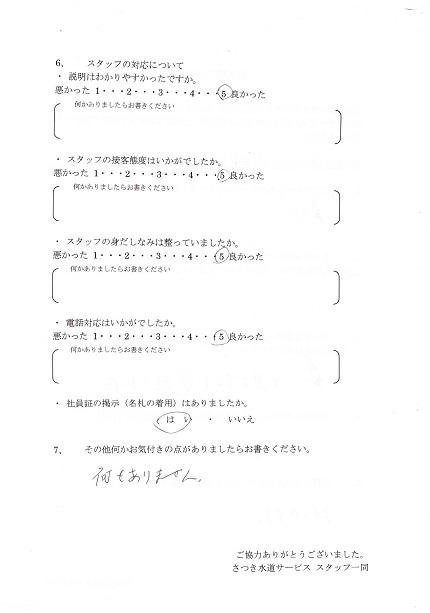 6、 スタッフの対応について
・ 説明はわかりやすかったですか。
悪かった 1・・・2・・・3・・・4・・・5 良かった
何かありましたらお書きください
・ スタッフの接客態度はいかがでしたか。
悪かった 1・・・2・・・3・・・4・・・5 良かった
何かありましたらお書きください
・ スタッフの身だしなみは整っていましたか。
悪かった 1・・・2・・・3・・・4・・・5 良かった
何かありましたらお書きください
・ 電話対応はいかがでしたか。
悪かった 1・・・2・・・3・・・4・・・5 良かった
何かありましたらお書きください
・ 社員証の掲示（名札の着用）はありましたか。
はい ・ いいえ
7、 その他何かお気付きの点がありましたらお書きください。
何もありません。
ご協力ありがとうございました。
さつき水道サービス スタッフ一同